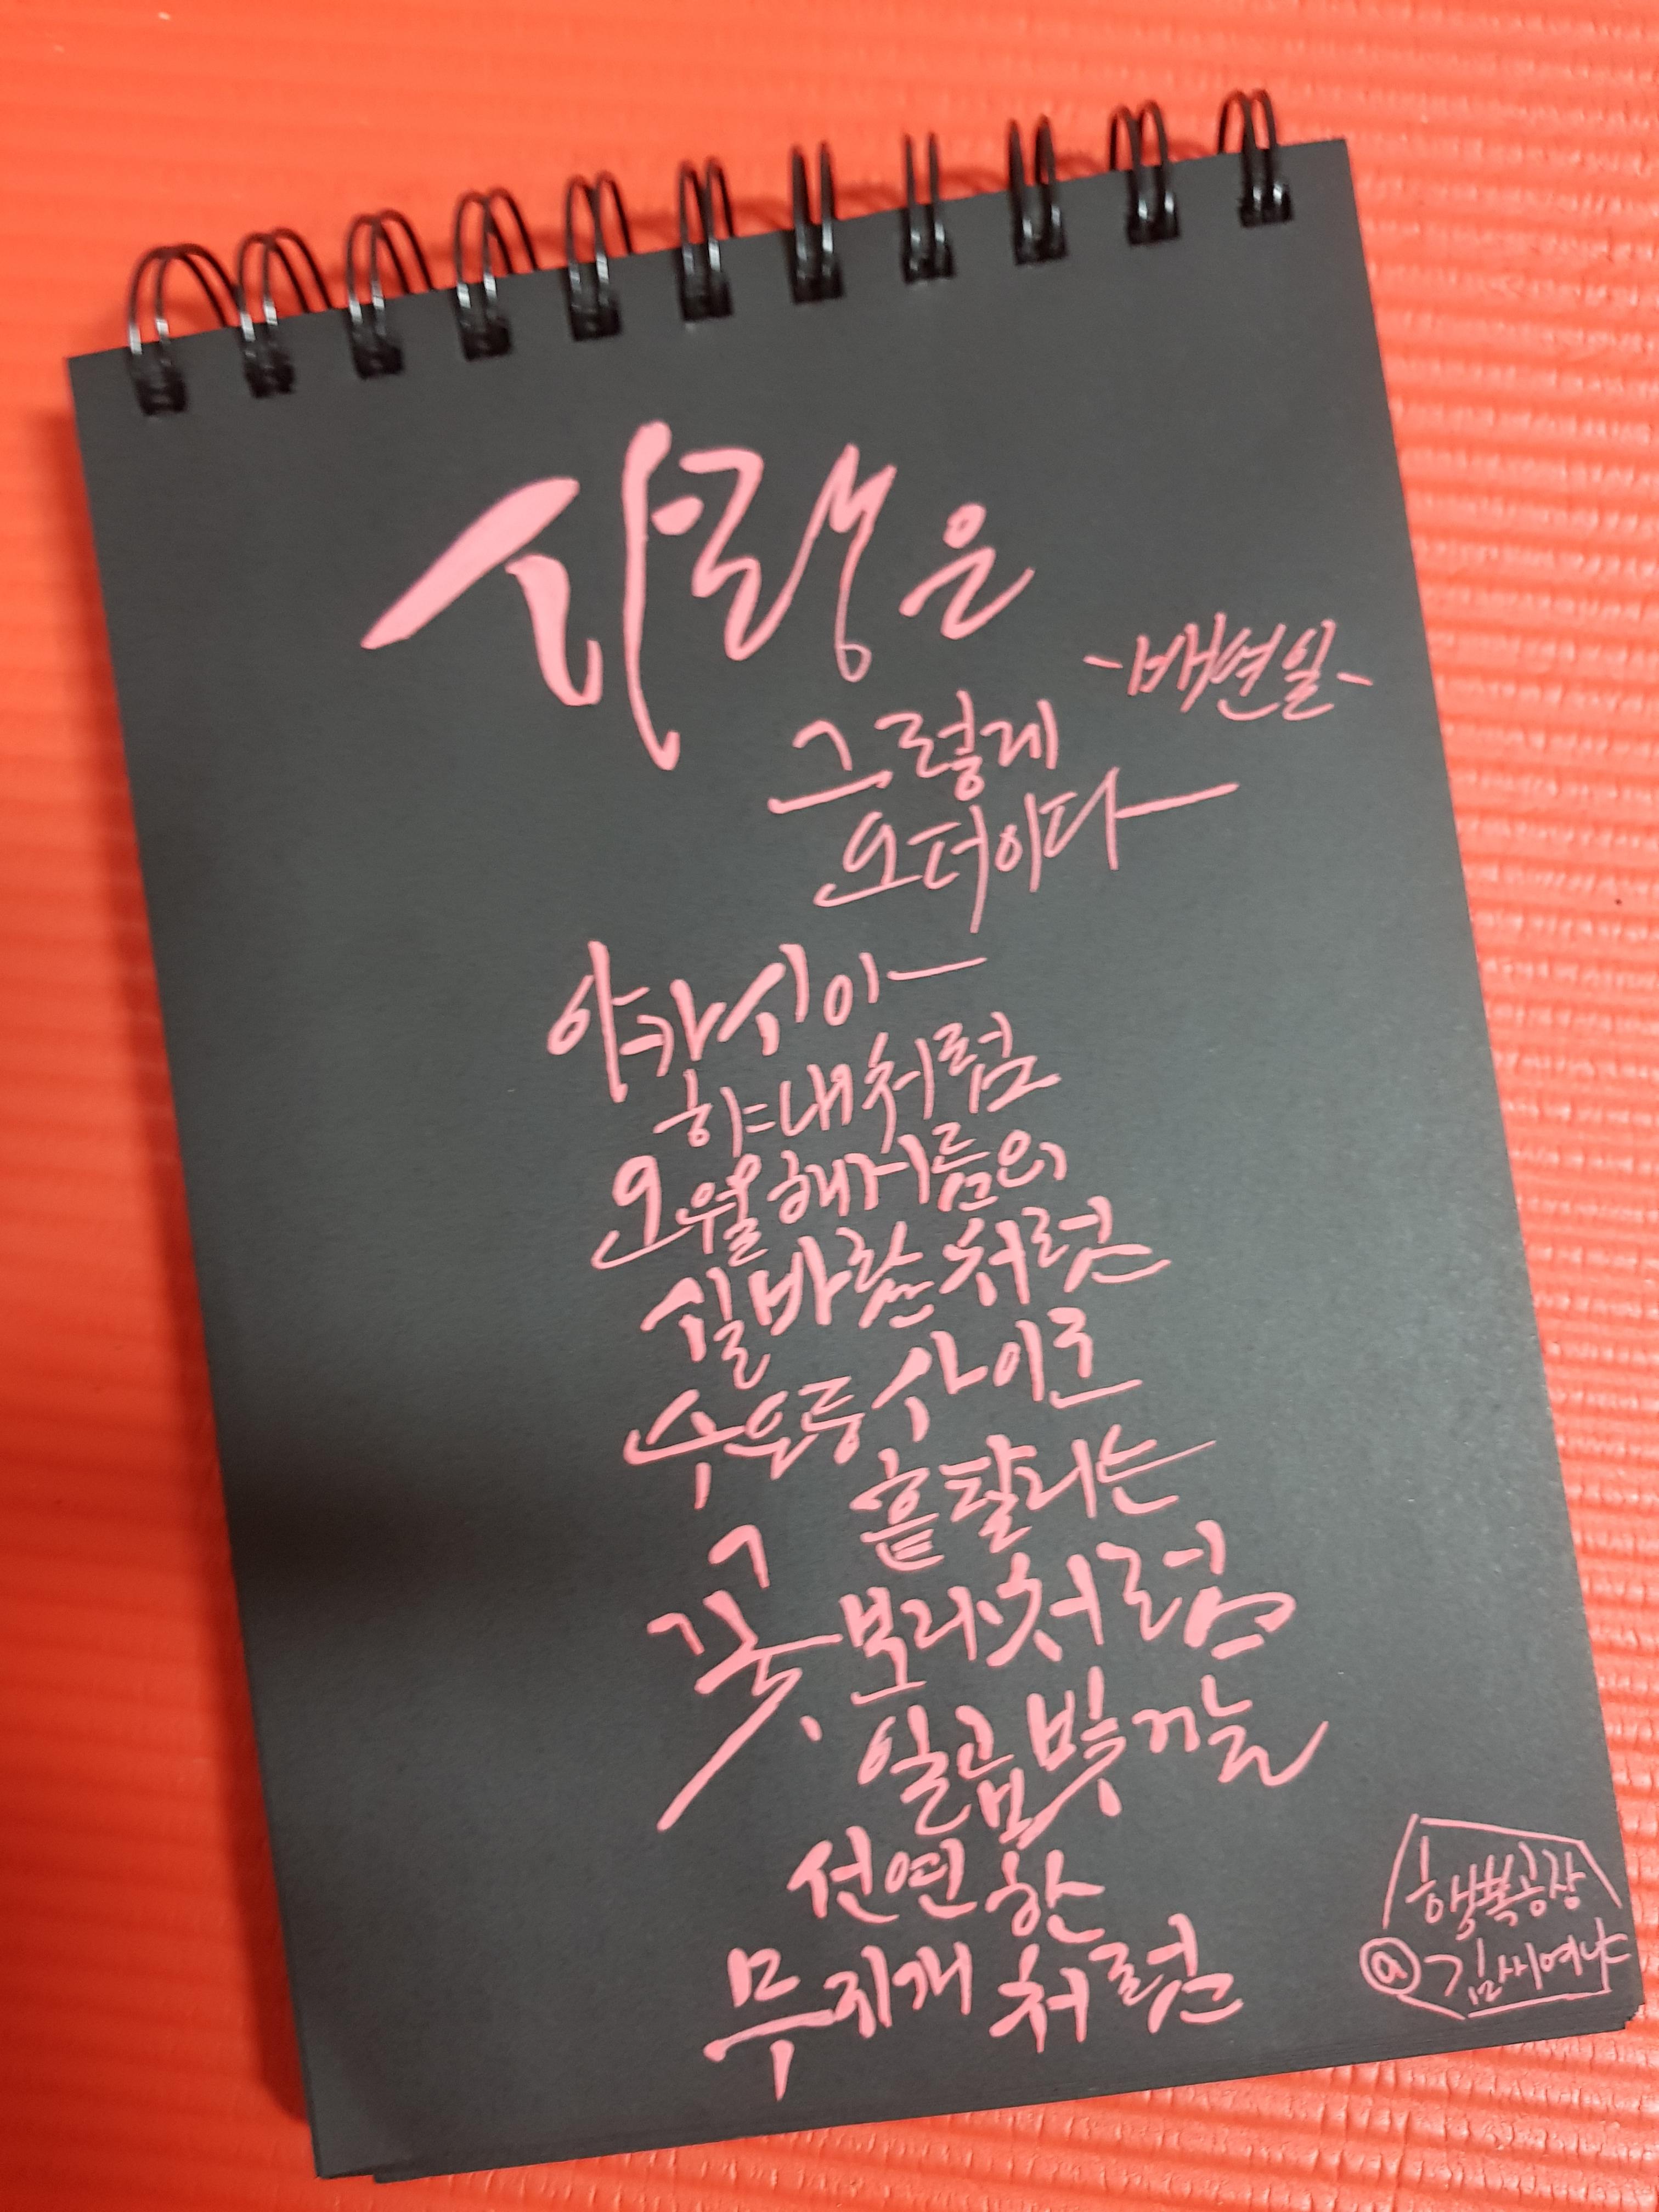 사랑은
-배연일-
그렇게
오더이다
아카시아
향내처럼
오월 해거름의
실바람처럼
수은등 사이로
흩날리는
꽃보라처럼
일곱 빛깔
선연한
무지개처럼
행복공장
@김씨여나